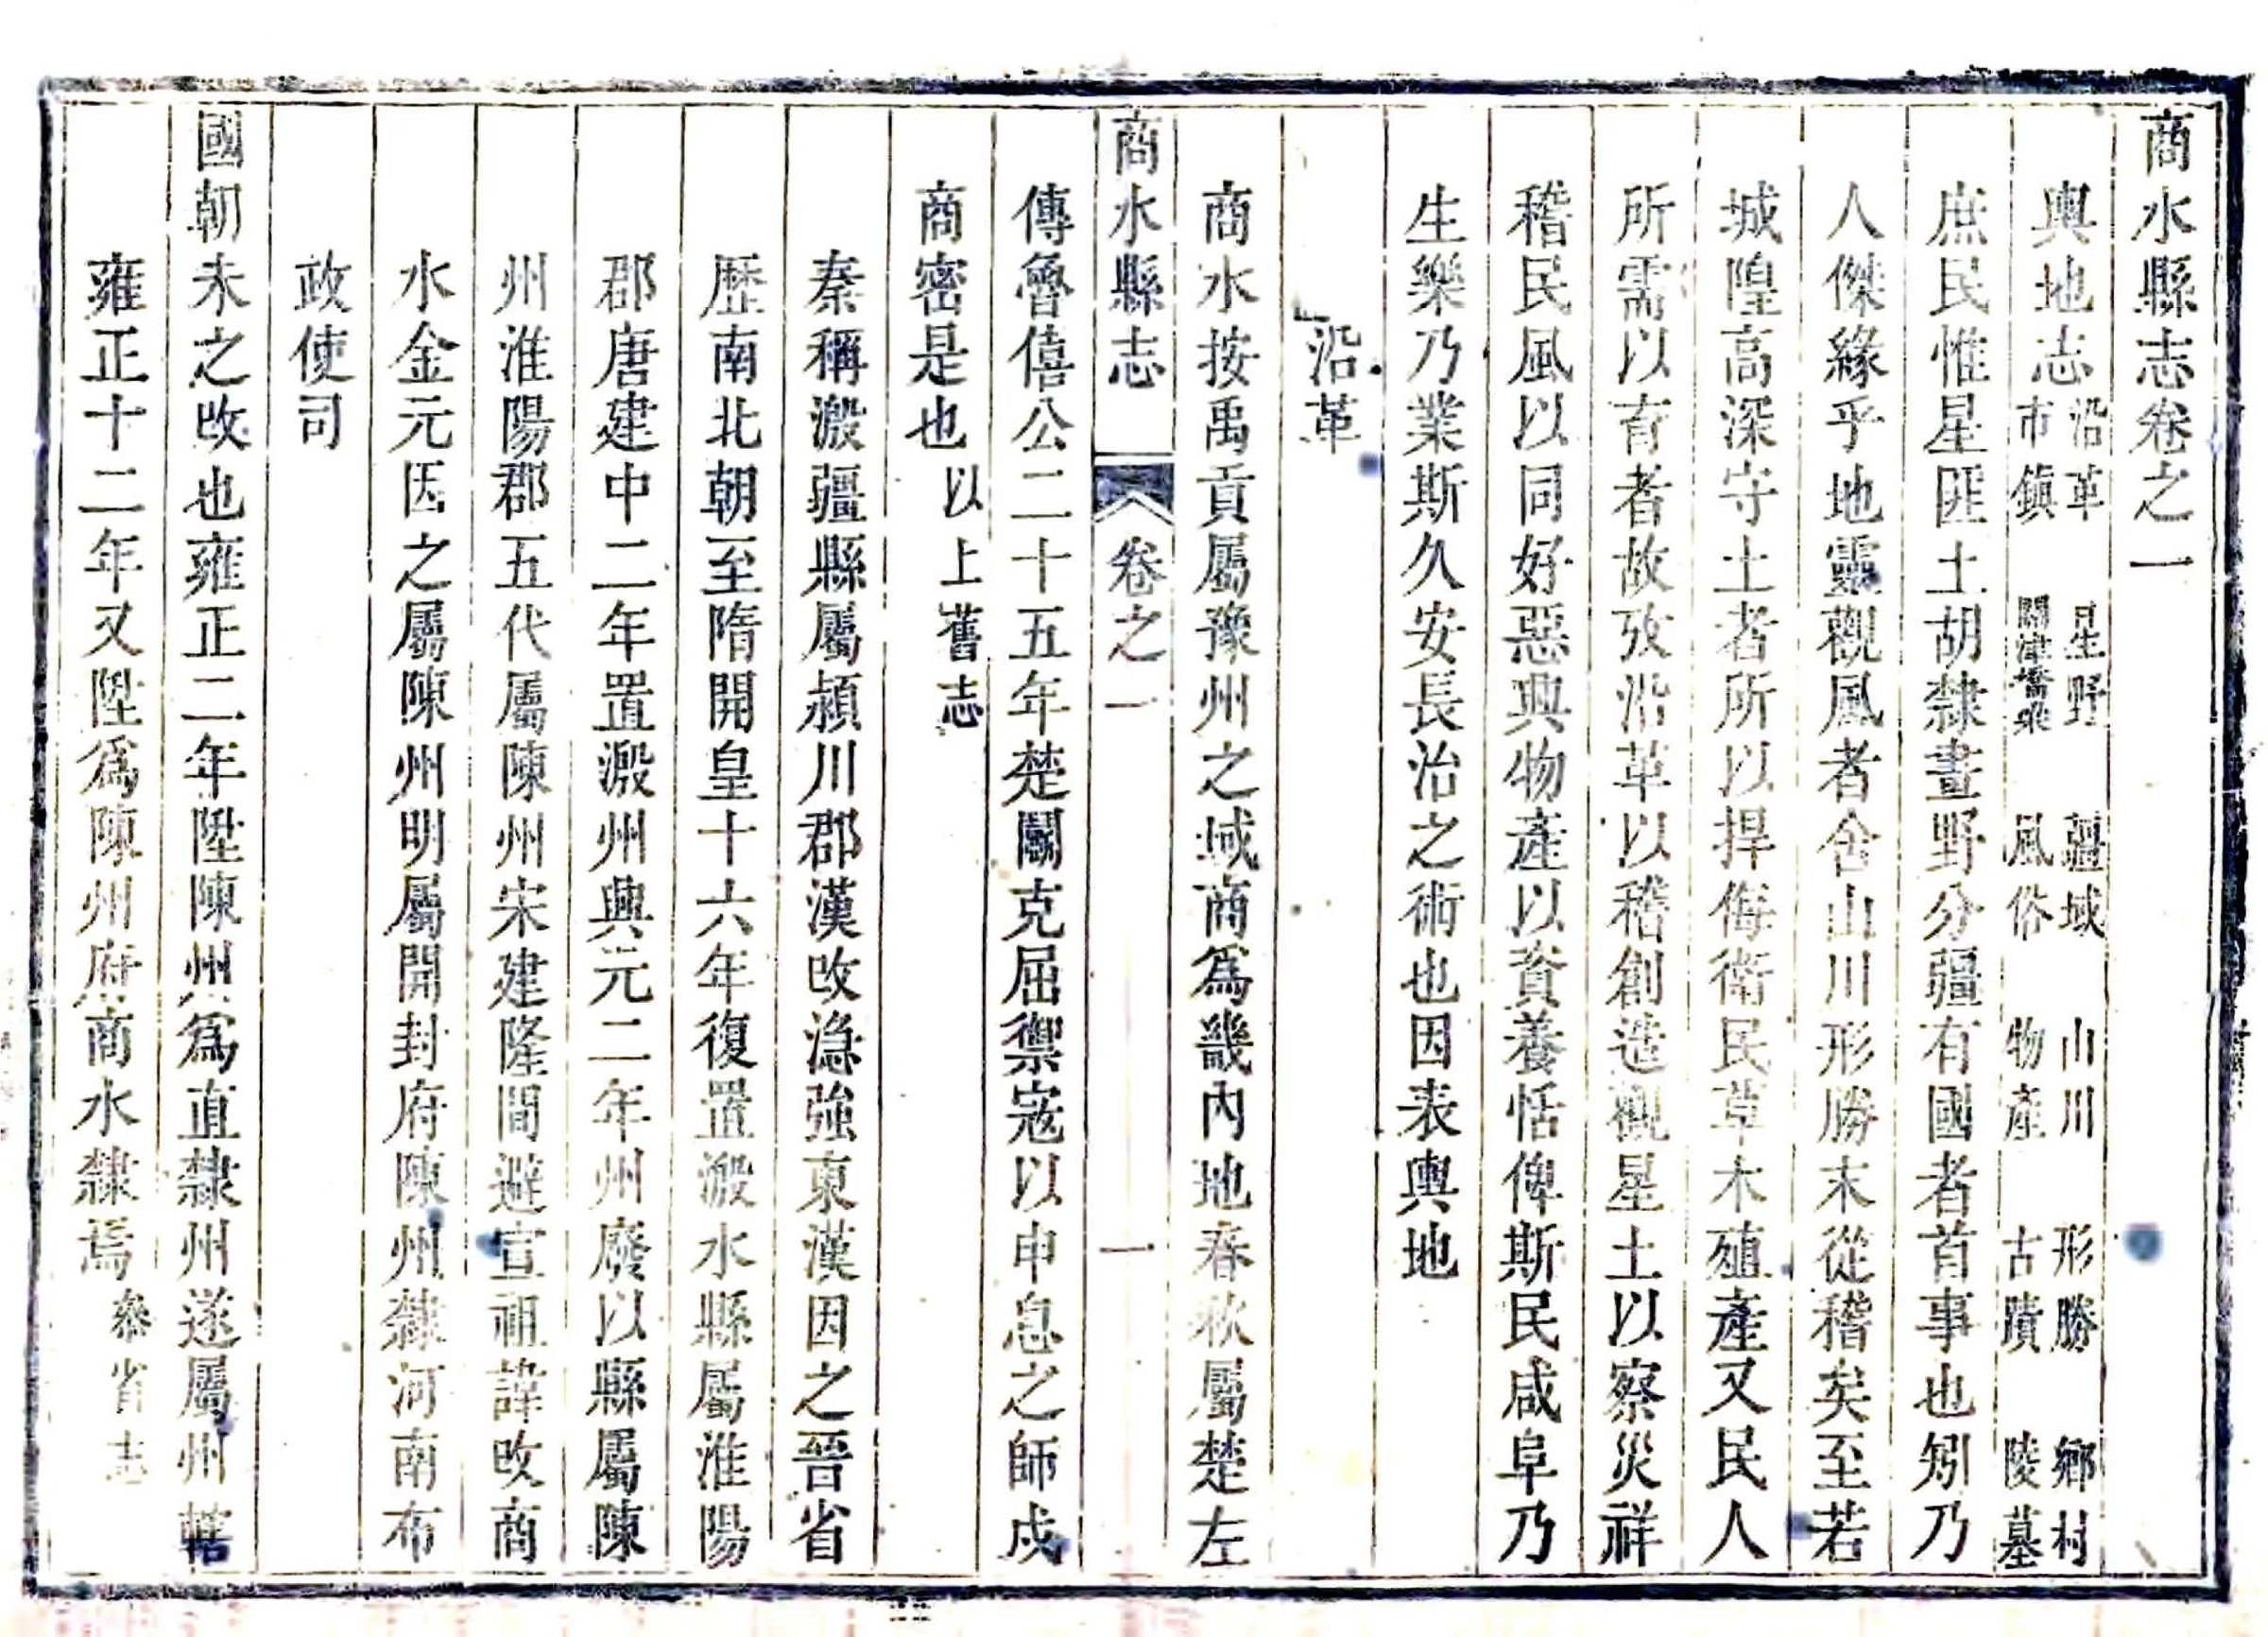 商水縣志卷之一
輿地志 沿革 星野 疆域 山川 形勝 鄉村
市鎮 關津橋梁 風俗 物產 古蹟 陵墓
庶民惟星匪土胡隸畫野分疆有國者首事也矧乃
人傑緣乎地靈觀風者舍山川形勝末從稽矣至若
城隍高深守土者所以捍侮衛民草木殖產又民人
所需以育者故攷沿革以稽創造觀星土以察災祥
稽民風以同好惡與物產以資養恬俾斯民咸阜乃
生樂乃業斯久安長治之術也因表輿地
沿革
商水按禹貢屬豫州之域商爲畿內地春秋屬楚左
商水縣志 卷之一 一
傳魯僖公二十五年楚鬭克屈禦寇以申息之師戍
商密是也以上舊志
秦稱溵疆縣屬潁川郡漢改漁強東漢因之晉省
歷南北朝至隋開皇十六年復置溵水縣屬淮陽
郡唐建中二年置溵州興元二年州廢以縣屬陳
州淮陽郡五代屬陳州宋建隆間避宣祖諱改商
水金元因之屬陳州明屬開封府陳州隸河南布
政使司
國朝未之改也雍正二年陞陳州爲直隸州遂屬州轄
雍正十二年又陞爲陳州府商水隸焉叅省志